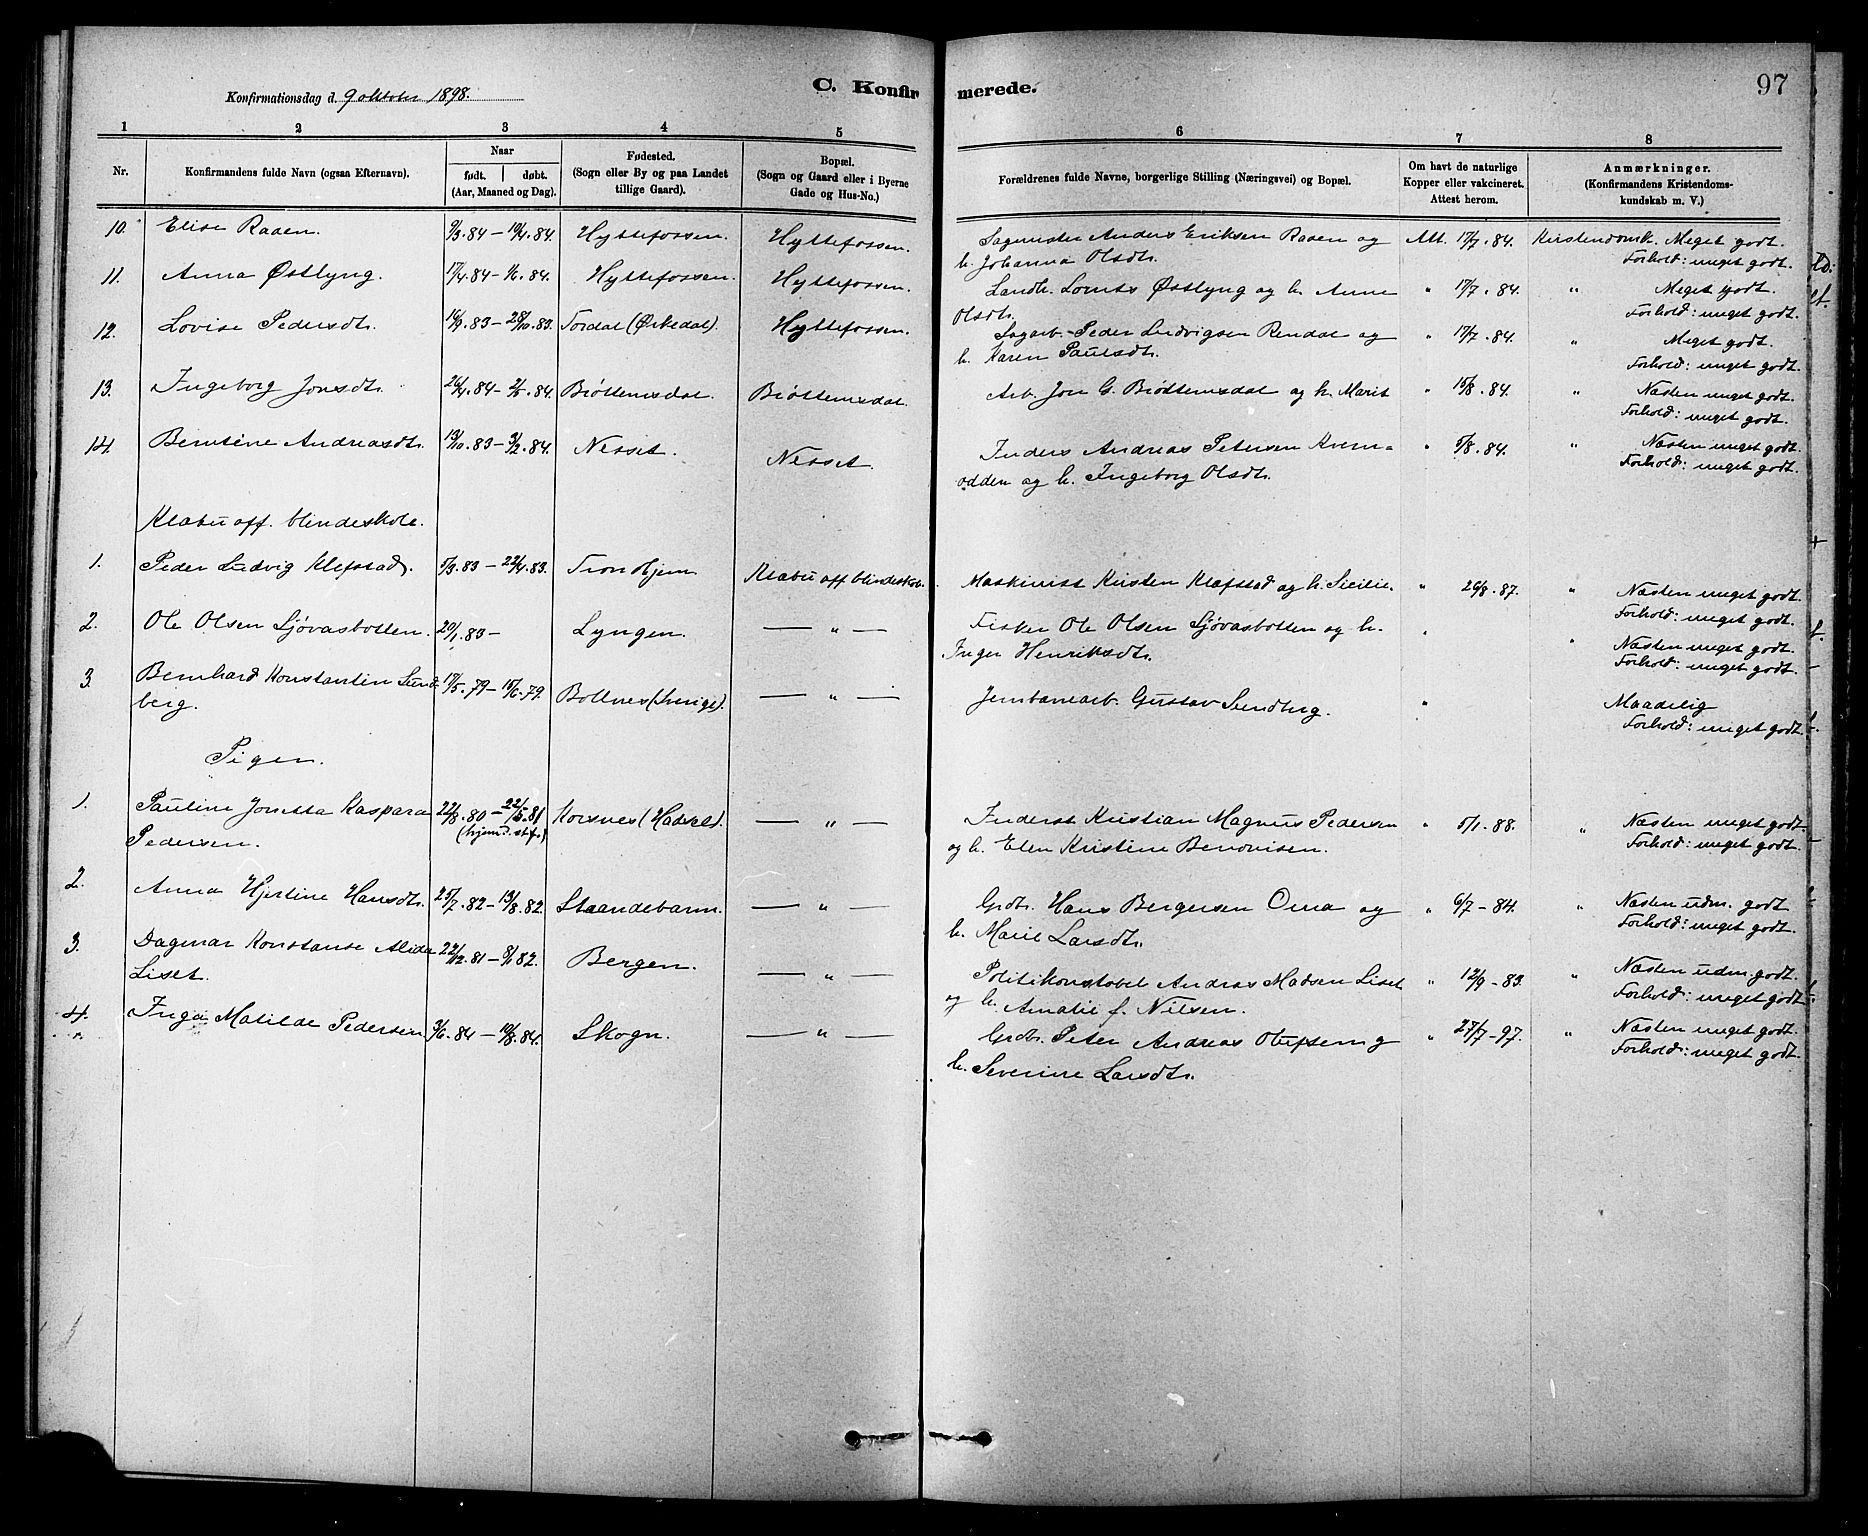 C. Konfirmerede.
97
Konfirmationsdag d. 9 oktober 1898.
1 2 3 4 5 6 7 8
Nr.
Konfirmandens fulde Navn (ogsaa Efternavn).
Naar
født. | døbt.
(Aar, Maaned og Dag).
Fødested.
(Sogn eller By og paa Landet
tillige Gaard).
Bopæl.
(Sogn og Gaard eller i Byerne
Gade og Hus-No.)
Forældrenes fulde Navne, borgerlige Stilling (Næringsvei) og Bopæl.
Om havt de naturlige
Kopper eller vakcineret.
Attest herom.
Anmærkninger.
(Konfirmandens Kristendoms-
kundskab m. V.)
10. Elise Raaen. 9/3.84 – 14/4.84. Hyttefossen. Hyttefossen. Sagmester Anders Eriksen Raaen og Att. 17/7.84. Kristendomsk. Meget godt.
h. Johanna Olsdtr. Forhold: meget godt.
11. Anna Østlyng. 17/4.84 – 1/6.84. Hyttefossen. Hyttefossen. Landh. Lornts Østlyng og h. Anne " 17/7.84. " Meget godt.
Olsdtr. Forhold: meget godt.
12. Lovise Pedersdtr. 16/9.83 – 28/10.83. Jordal (Ørkedal). Hyttefossen. Sagarb. Peder Ludvigsen Rendal og " 17/7.84. " Meget godt.
h. Karen Paulsdtr. Forhold: meget godt.
13. Ingeborg Jonsdtr. 26/4.84 – 2/5.84. Brøttemsdal. Brøttemsdal. Arb. Jon G. Brøttemsdal og h. Marit " 15/8.84. " Næsten meget godt.
Forhold: meget godt.
14. Berntine Andreasdtr. 13/10.83 – 3/2.84. Nesset. Nesset. Inders. Andreas Petersen Kvern- " 5/8.84. " Næsten meget godt.
odden og h. Ingeborg Olsdtr. Forhold: meget godt.
Klæbu off. blindeskole.
1. Peder Ludvig Klefstad. 5/3.83 – 22/4.83. Trondhjem Klæbu off blindeskole. Maskinist Kristen Klæfstad og h. Sicilie. " 26/8.87. " Næsten meget godt.
Forhold: meget godt.
2. Ole Olsen Sjøvasbotten. 20/1.83 – Lyngen. — " — Fisker Ole Olsen Sjøvasbotten og h. " " Næsten meget godt.
Inger Henriksdtr. Forhold: meget godt.
3. Bernhard Konstantin Sund- 17/5.79 – 15/6.79. Bollnes (Sverige). — " — Jernbanearb. Gustav Sundberg. " Maadelig
berg. Forhold: meget godt.
Piger.
1. Pauline Jonetta Kaspara 22/8.80 – 22/5.81 Korsnes (Hadsel). — " — Inderst Kristian Magnus Pedersen " 5/1.88. " Næsten meget godt.
Pedersen. (hjemd. stf.) og h. Elen Kristine Benonisen. Forhold: meget godt.
2. Anna Hjertine Hansdtr. 25/7.82 – 13/8.82. Strandebarm. — " — Grdbr. Hans Bergersen Oma og " 6/7 – 84. " Næsten udm. godt
h. Marie Larsdtr. Forhold: meget godt.
3. Dagmar Konstanse Alida 22/12.81 – 8/1.82. Bergen. — " — Politikonstabel Andreas Madsen Liset " 12/9 – 83. " Næsten udm. godt.
Liset. og h. Amalie f. Nilsen. Forhold: meget godt
4. Inga Matilde Pedersen 3/6.84 – 10/8.84. Skogn. — " — Grdbr. Peter Andreas Olufsen og " 27/7 – 97. " Næsten meget godt.
h. Severine Larsdtr. Forhold: meget godt.